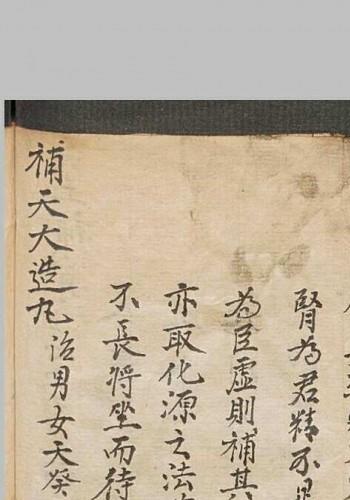 腎為君精不
為臣虛則補其
亦取化源之法
不長將坐而待
補天大造丸治男女天癸